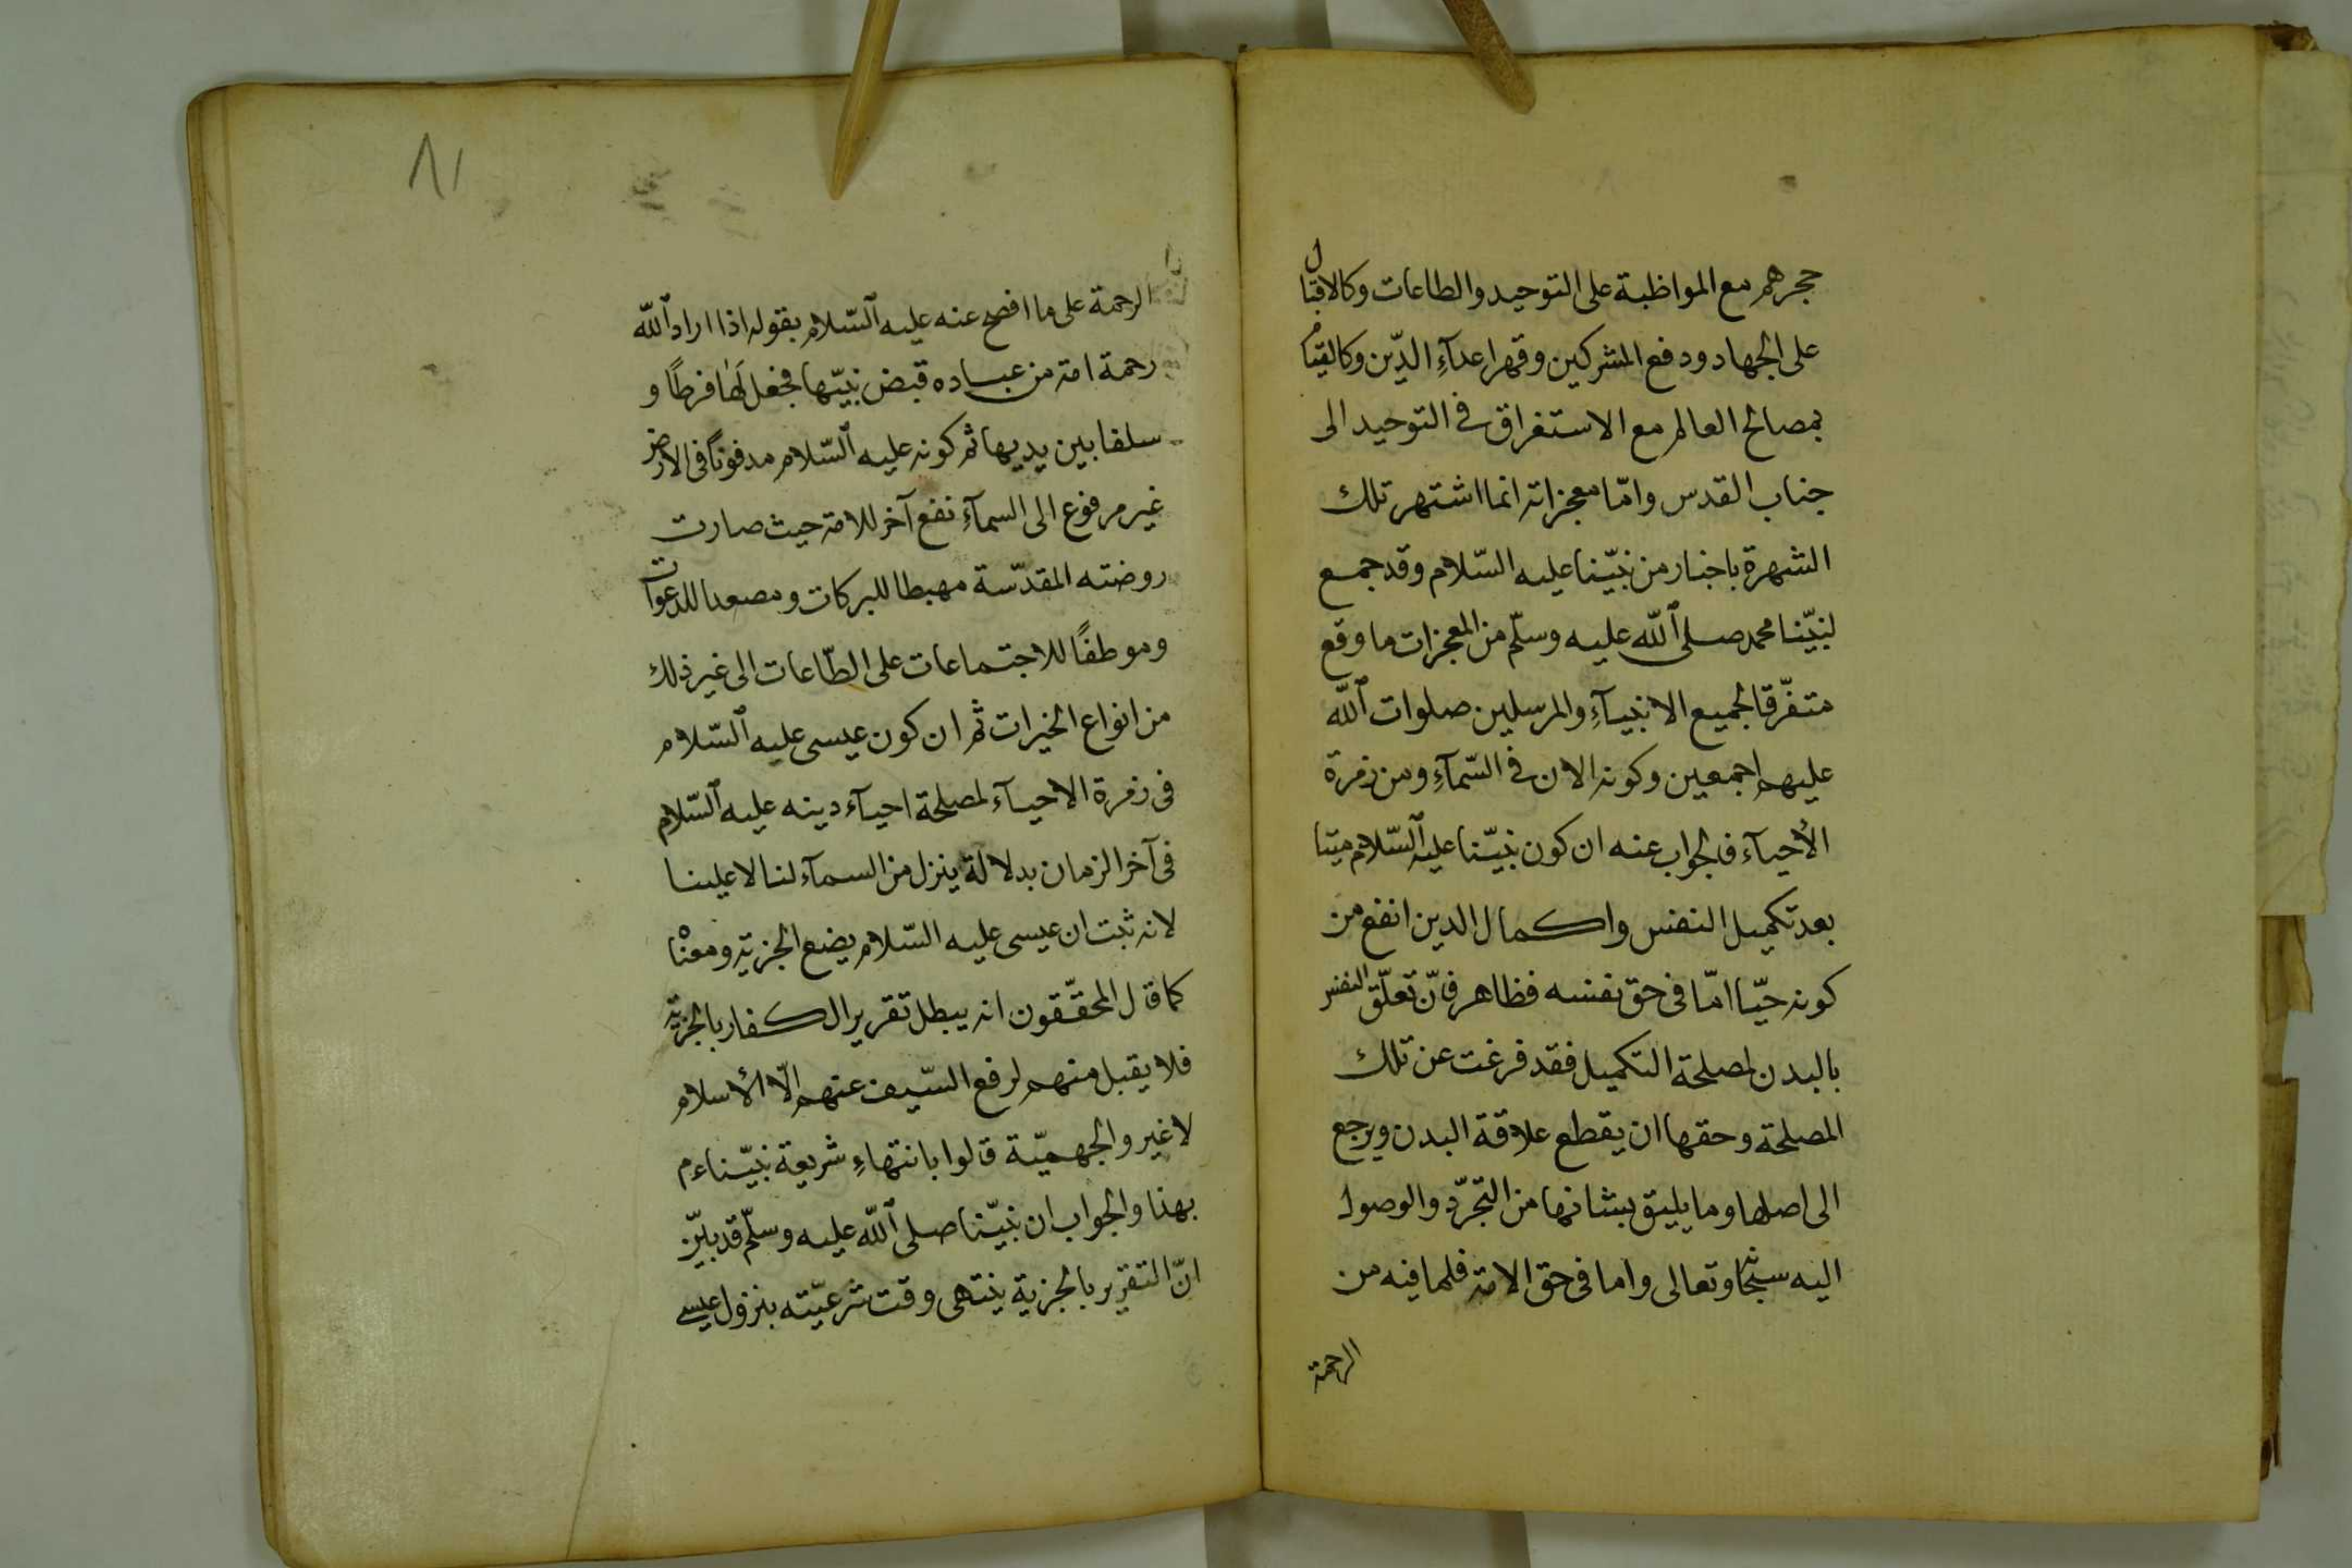 حجرهم مع المواظبة على التوحيد والطاعات وكالاقبال
على الجهاد ودفع المشركين وقهر اعدآءِ الدّين وكالقيام
بمصالح العالم مع الاستغراق فى التوحيد الى
جناب القدس وامّا معجزاته انما اشتهر تلك
الشهرة باخبار من نبيّنا عليه السّلام وقد جمع
لنبيّنا محمد صلى ٱللّه عليه وسلّم من المعجزات ما وقع
متفرّقا لجميع الانبيآءِ والمرسلين صلوات ٱللّه
عليهم اجمعين وكونه الان فى السّمآءِ ومن زمرة
الأحيآء فالجواب عنه ان كون نبيّنا عليه ٱلسّلام ميتا
بعد تكميل النفس واكمال الدين انفع من
كونه حيّا امّا فى حق نفسه فظاهر فانّ تعلّق النفس
بالبدن لمصلحة التكميل فقد فرغت عن تلك
المصلحة وحقها ان يقطع علاقة البدن ويرجع
الى اصلها وما يليق بشانها من التجرّد والوصول
اليه سبحانه وتعالى واما فى حق الامة فلما فيه من
الرحمة
٨١
الرحمة على ما افصح عنه عليه ٱلسّلام بقوله اذا اراد ٱللّه
رحمة امة من عباده قبض نبيّها فجعل لها فرطًا و
سلفا بين يديها ثم كونه عليه ٱلسّلام مدفونًا فى الارض
غير مرفوع الى السمآءِ نفع آخر للامة حيث صارت
روضته المقدّسة مهبطا للبركات ومصعدا للدعوات
وموطفًا للاجتماعات على الطّاعات الى غير ذلك
من انواع الخيرات ثم ان كون عيسى عليه ٱلسّلام
فى زمرة الاحيآء لمصلحة احيآء دينه عليه ٱلسّلام
فى آخر الزمان بدلالة ينزل من السمآء لنا لا علينا
لانه ثبت ان عيسى عليه السّلام يضع الجزية ومعناه
كما قال المحقّقون انه يبطل تقرير الكفار بالجزية
فلا يقبل منهم لرفع السّيف عنهم الّا الأسلام
لا غير والجهميّة قالوا بانتهاءِ شريعة نبيّنا ءم
بهذا والجواب ان نبيّنا صلى ٱللّه عليه وسلّم قد بيّن
انّ التقرير بالجزية ينتهى وقت شرعيّته بنزول عيسى